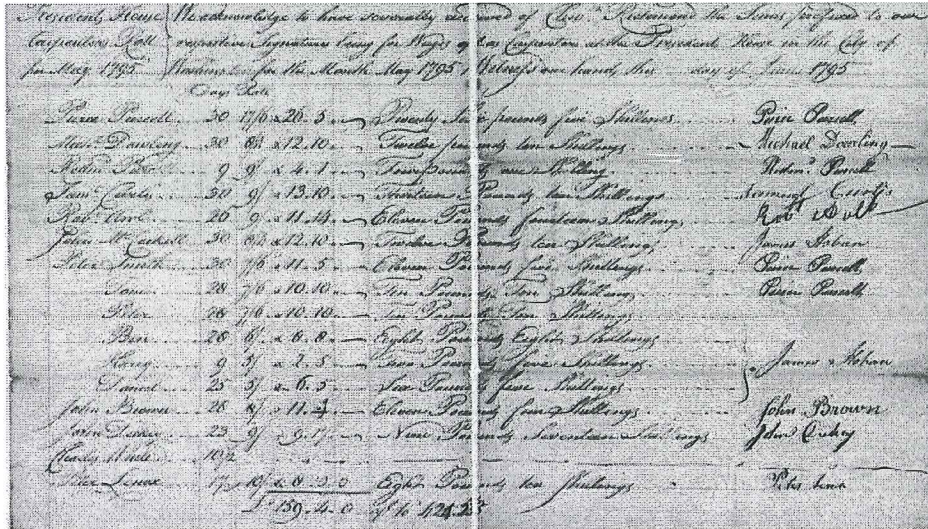 Presidents House We acknowledge to have severally received of Clot. Richmond the Sums prefixed to our
Carpenters Roll respective Signatures being for Wages as Carpenters at the President House in the City of
for May 1795 Washington for the Month May 1795 Witness our hands this day of June 1795
Days Rate
Pierce Purcell 30 17/6 26.5 Twenty Six pounds five Shillings Pierce Purcell
Dowling 30 12.10 Twelve pounds ten Shillings Michael Dowling
9 9/ 4.1 Four pounds one Shilling Purcell
30 9/ 13.10 Thirteen Pounds ten Shillings
26 9/ 11.14 Eleven Pounds fourteen Shillings Robt
John 30 12.10 Twelve Pounds ten Shillings James Hoban
Peter Smith 30 7/6 11.5 Eleven Pounds five Shillings Pierce Purcell
28 7/6 10.10 Ten Pounds Ten Shillings Pierce Purcell
Peter 28 7/6 10.10 Ten Pounds Ten Shillings
Ben 28 6/ 8.8 Eight Pounds Eight Shillings
Harry 9 5/ 2.5 Two Pounds five Shillings James Hoban
Daniel 25 5/ 6.5 Six Pounds five Shillings
John Brown 28 8/ 11.4 Eleven Pounds four Shillings John Brown
23 9/ Nine Pounds Seventeen Shillings John
10½
Peter Lenox 17 10/ Eight Pounds ten Shillings Peter Lenox
159.4.0